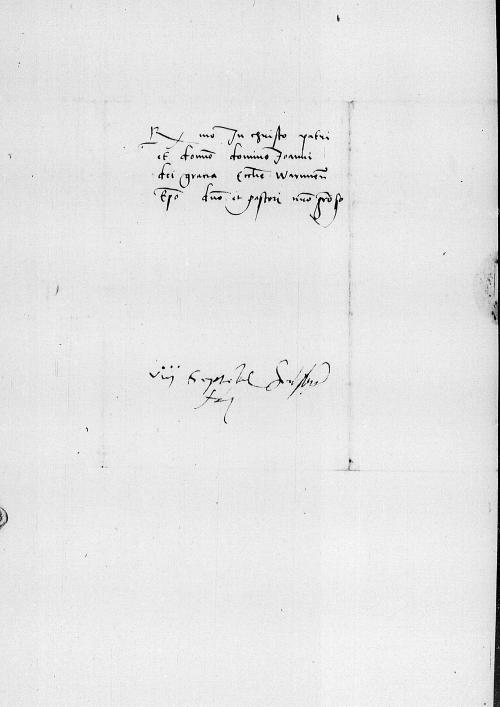 R mo In christo patri
et domno domino Joanni
dei gracia Ecclie Warmien
Epo dno et pastori meo gr͞oso
viij Septēb